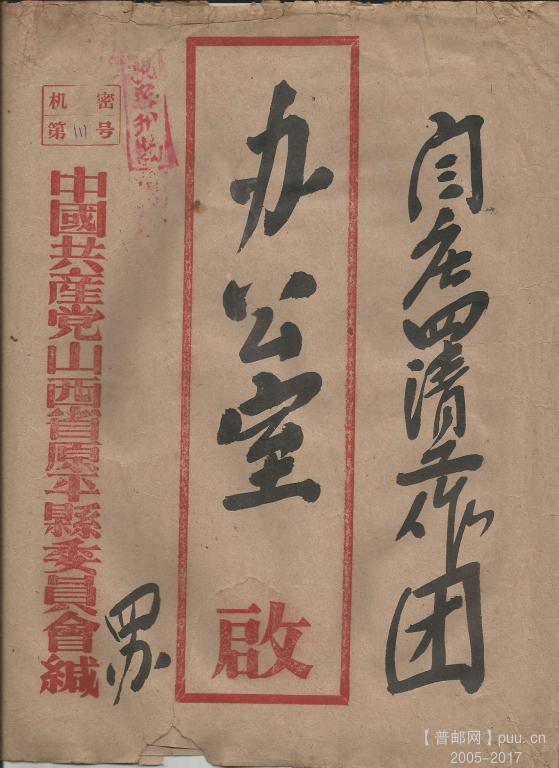 闫庄四清工作团
办公室
啟
机密
第 111 号
中國共産党山西省原平縣委員會緘
【普邮网】puu.cn
2005-2017